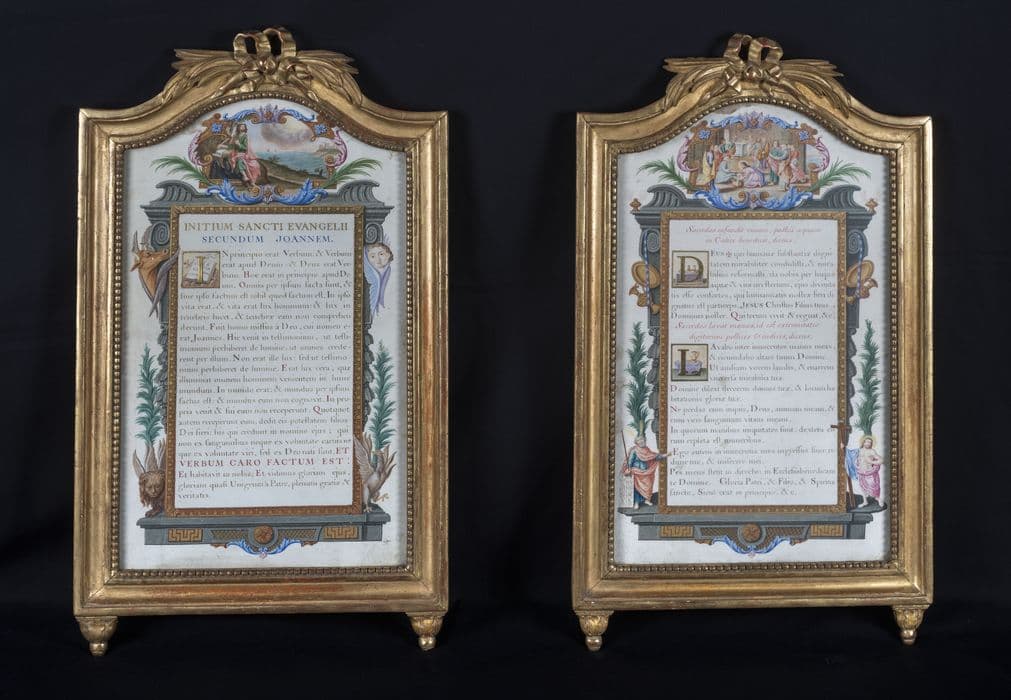 INITIUM SANCTI EVANGELII
SECUNDUM JOANNEM.
IN principio erat Verbum: & Verbum
erat apud Deum: & Deus erat Ver-
bum. Hoc erat in principio apud De-
um. Omnia per ipsum facta sunt, &
sine ipso factum est nihil quod factum est. In ipso
vita erat, & vita erat lux hominum: & lux in
tenebris lucet, & tenebræ eam non comprehen
derunt. Fuit homo missus à Deo, cui nomen e-
rat Joannes. Hic venit in testimonium, ut testi-
monium perhiberet de lumine, ut omnes crede-
rent per illum. Non erat ille lux: sed ut testimo-
nium perhiberet de lumine. Erat lux vera, quæ
illuminat omnem hominem venientem in hunc
mundum. In mundo erat, & mundus per ipsum
factus est: & mundus eum non cognovit. In pro
pria venit & sui eum non receperunt. Quotquot
autem receperunt eum, dedit eis potestatem filios
Dei fieri; his qui credunt in nomine ejus; qui
non ex sanguinibus neque ex voluntate carnis ne
que ex voluntate viri, sed ex Deo nati sunt. ET
VERBUM CARO FACTUM EST:
Et habitavit in nobis; Et vidimus gloriam ejus,
gloriam quasi Unigeniti à Patre, plenum gratiæ &
veritatis.
Sacerdos infundit vinum, postea aquam
in Calice benedicat, dicens.
DEUS qui humanæ substantiæ digni-
tatem mirabiliter condidisti, & mira-
bilius reformasti, da nobis per hujus
aquæ & vini mysterium, ejus divinita
tis esse consortes, qui humanitatis nostræ fieri di
gnatus est particeps, JESUS Christus Filius tuus
Dominus noster. Qui tecum vivit & regnat, &c.
Sacerdos lavat manus, id est extremitates
digitorum pollicis & indicis, dicens.
LAvabo inter innocentes manus meas,
& circumdabo altare tuum Domine.
Ut audiam vocem laudis, & enarrem
universa mirabilia tua.
Domine dilexi decorem domus tuæ, & locum ha
bitationis gloriæ tuæ.
Ne perdas cum impiis, Deus, animam meam, &
cum viris sanguinum vitam meam.
In quorum manibus iniquitates sunt: dextera eo
rum repleta est muneribus.
Ego autem in innocentia mea ingressus sum: re
dime me, & miserere mei.
Pes meus stetit in directo, in Ecclesiis benedicam
te Domine. Gloria Patri, & Filio, & Spiritui
Sancto, Sicut erat in principio, &c.